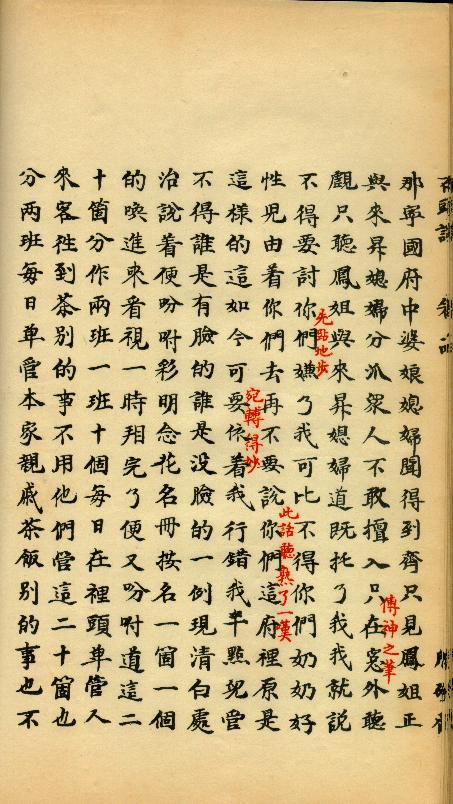 那寧國府中婆娘媳婦聞得到齊只見鳳姐正
與來昇媳婦分派衆人不敢擅入只在窓外聽
傳神之筆
覷只聽鳳姐與來昇媳婦道既托了我我就説
不得要討你們嫌了我可比不得你們奶奶好
先點地步
性児由着你們去再不要説你們這府裡原是
此話聽熟了一嘆
這樣的這如今可要依着我行錯我半點兒管
宛轉得妙
不得誰是有臉的誰是没臉的一例現清白處
治説着便吩咐彩明念花名冊按名一箇一個
的喚進來看視一時看完了便又吩咐道這二
十箇分作兩班一班十個每日在裡頭单管人
來客徃到茶別的事不用他們管這二十箇也
分兩班每日单管本家親戚茶飯別的事也不